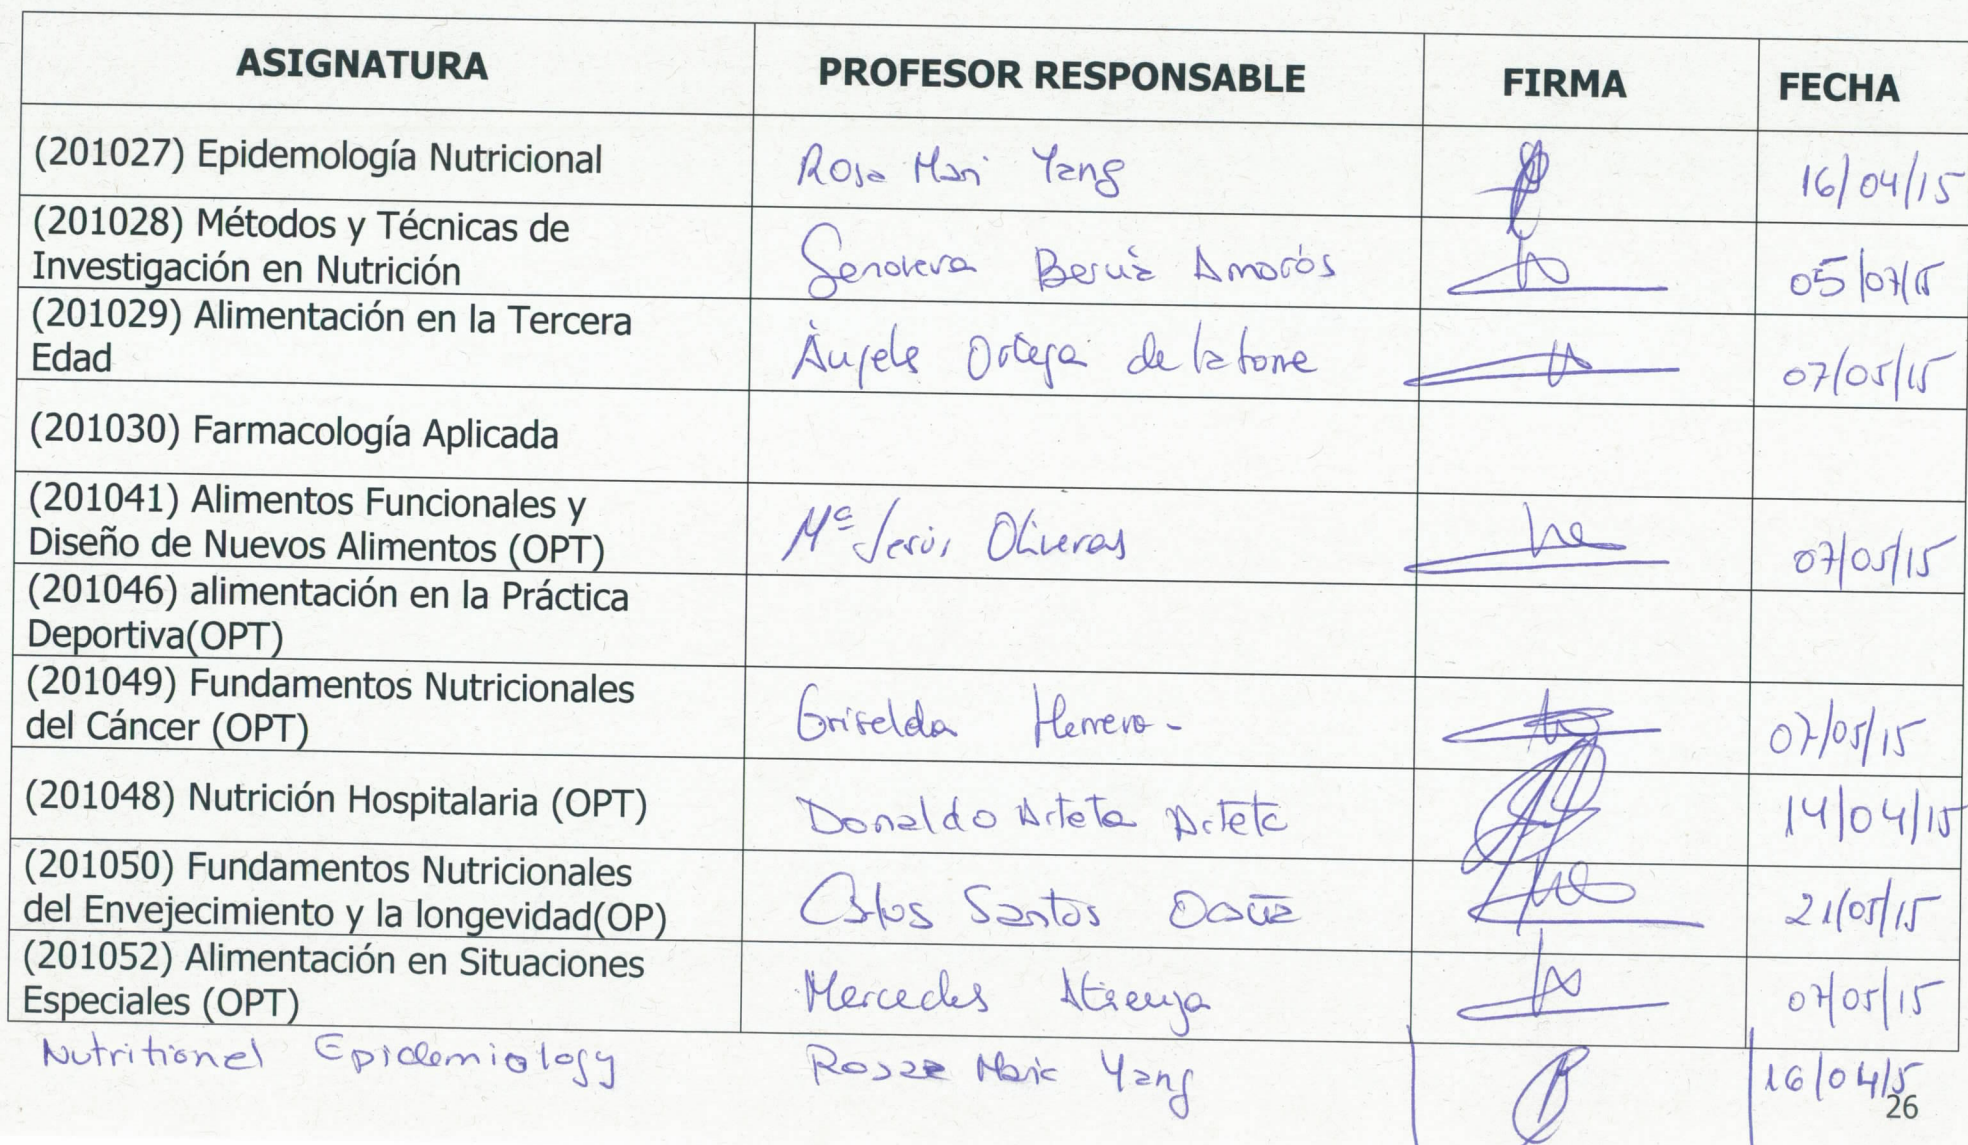 ASIGNATURA PROFESOR RESPONSABLE FIRMA FECHA
(201027) Epidemología Nutricional Rosa Mari Yang 16/04/15
(201028) Métodos y Técnicas de
Investigación en Nutrición Genoveva Amorós 05/07/15
(201029) Alimentación en la Tercera
Edad Ángeles Ortega de la torre 07/05/15
(201030) Farmacología Aplicada
(201041) Alimentos Funcionales y
Diseño de Nuevos Alimentos (OPT) Mª Jesús Oliveras 07/05/15
(201046) alimentación en la Práctica
Deportiva(OPT)
(201049) Fundamentos Nutricionales
del Cáncer (OPT) Griselda Herrero - 07/05/15
(201048) Nutrición Hospitalaria (OPT) Donaldo Arteta Arteta 14/04/15
(201050) Fundamentos Nutricionales
del Envejecimiento y la longevidad(OP) Carlos Santos Ocaña 21/05/15
(201052) Alimentación en Situaciones
Especiales (OPT) Mercedes 07/05/15
Nutritional Epidemiology Yang 16/04/15
26